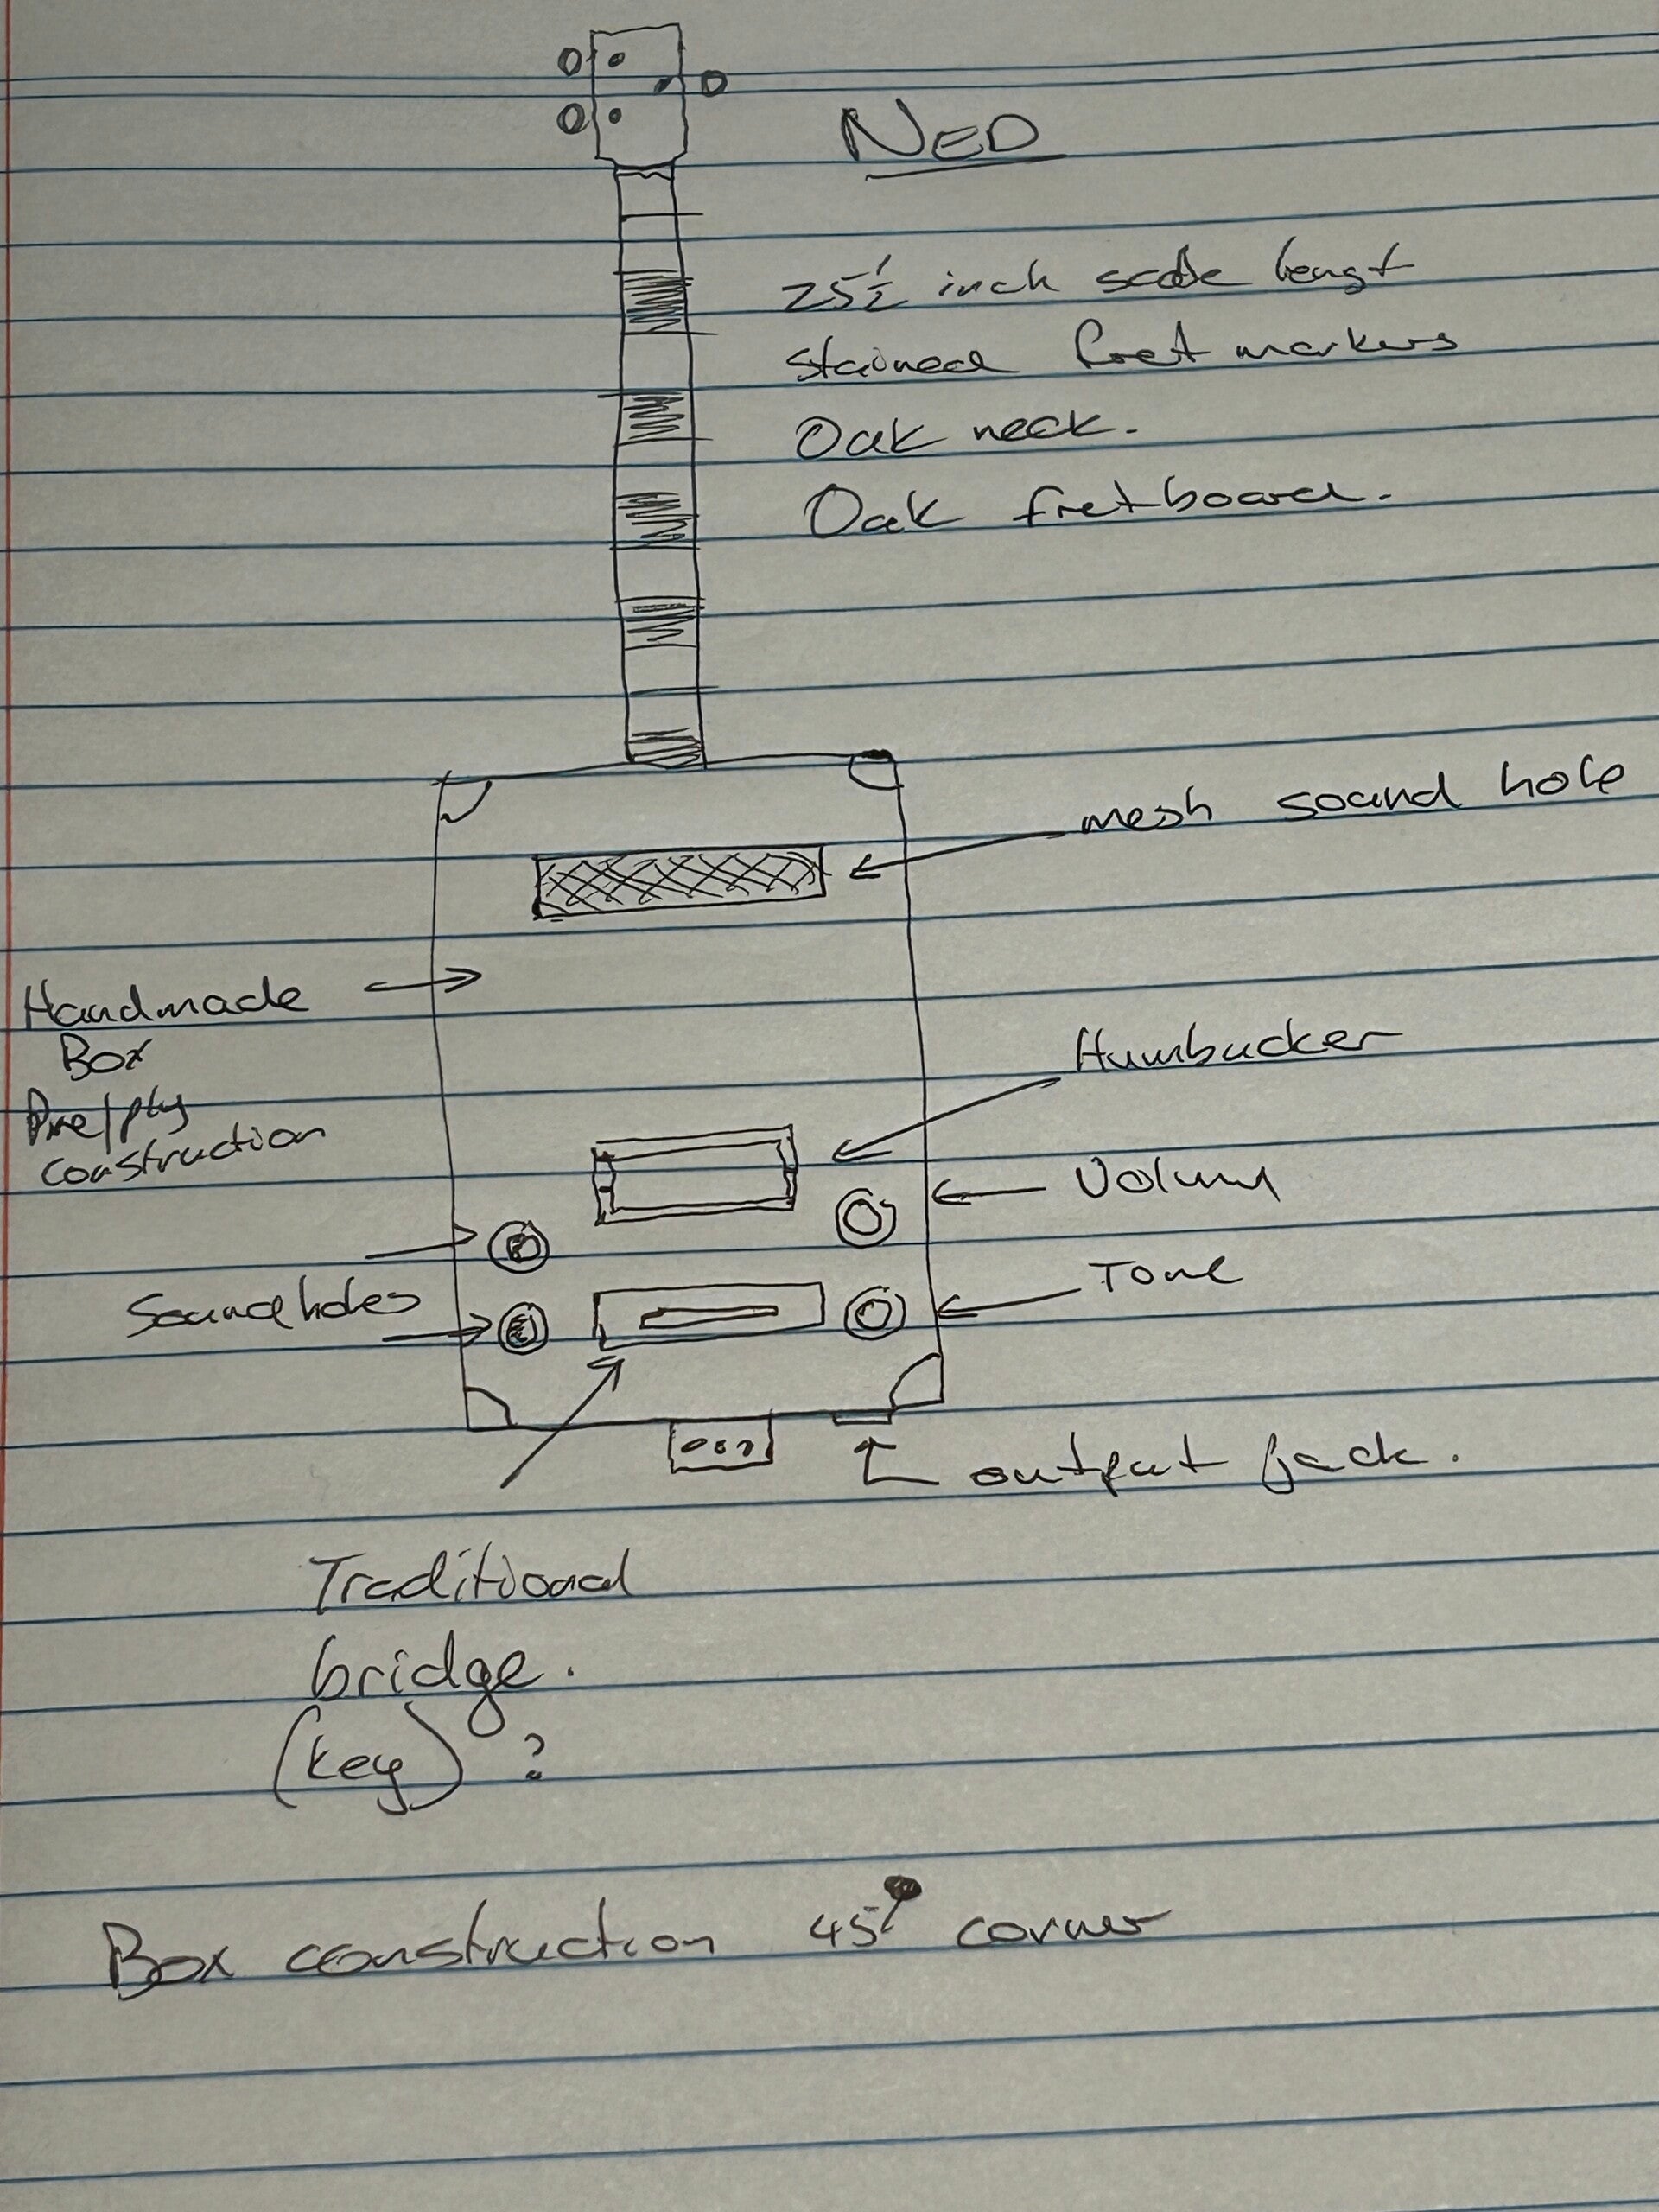 NED
25½ inch scale lengt
stained fret markers
Oak neck.
Oak fretboard.
mesh sound hole
Handmade
Box
Pine/ply
construction
Humbucker
Volum
Tone
Sound holes
output jack.
Traditional
bridge.
(key) ?
Box construction 45° corner